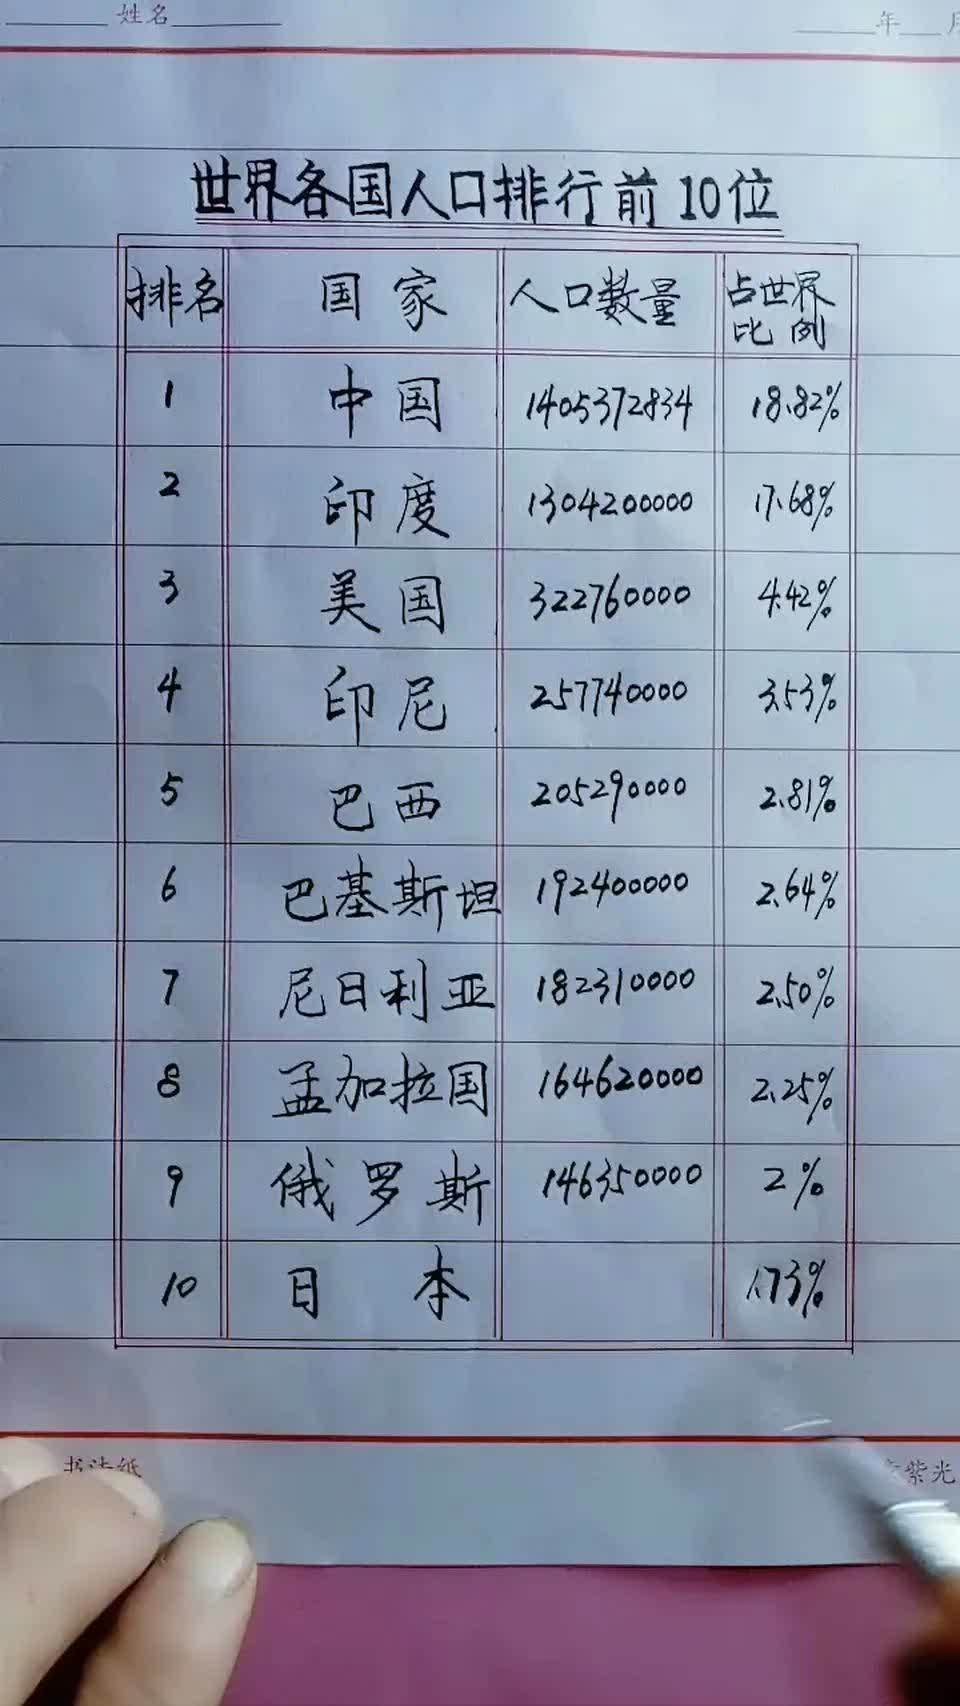 姓名 年 月
世界各国人口排行前10位
排名 国家 人口数量 占世界比例
1 中国 1405372834 18.82%
2 印度 1304200000 17.68%
3 美国 322760000 4.42%
4 印尼 257740000 3.53%
5 巴西 205290000 2.81%
6 巴基斯坦 192400000 2.64%
7 尼日利亚 182310000 2.50%
8 孟加拉国 164620000 2.25%
9 俄罗斯 146350000 2%
10 日本 1.73%
书法纸 紫光